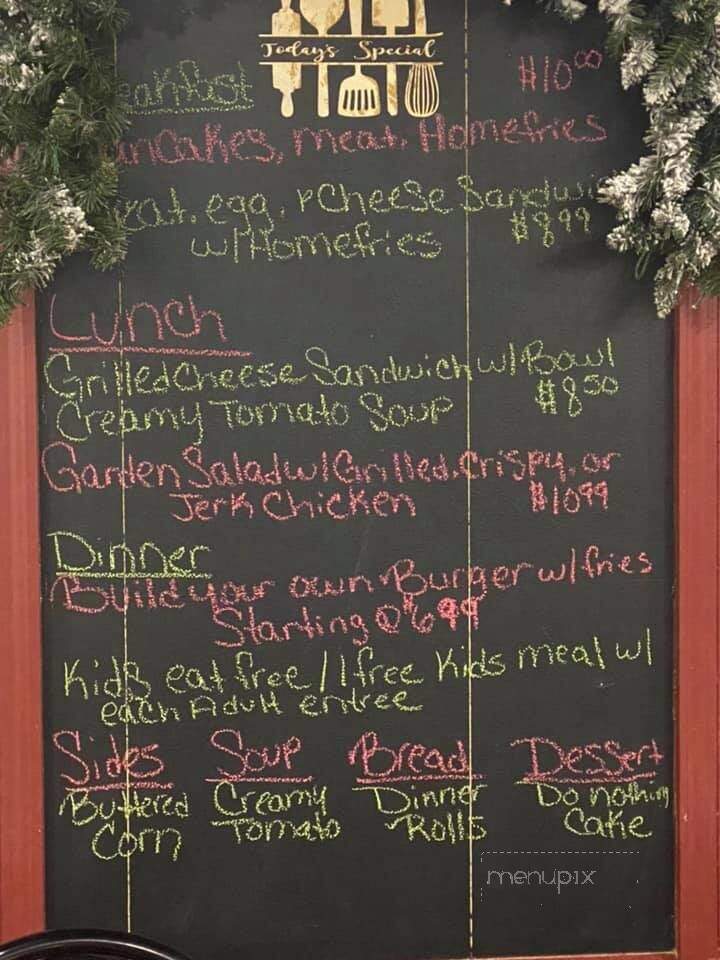 Today's Special
eakfast $10.00
ancakes, meat, Homefries
eat, egg, & Cheese Sandwi
w/Homefries $8.99
Lunch
Grilled Cheese Sandwich w/ Bowl
Creamy Tomato Soup $8.50
Garden Salad w/ Grilled, Crispy, or
Jerk Chicken $10.99
Dinner
Build your own Burger w/ fries
Starting @ $6.99
Kids eat free / 1 free Kids meal w/
each Adult entree
Sides Soup Bread Dessert
Buttered Creamy Dinner Do nothing
Corn Tomato Rolls Cake
menupix